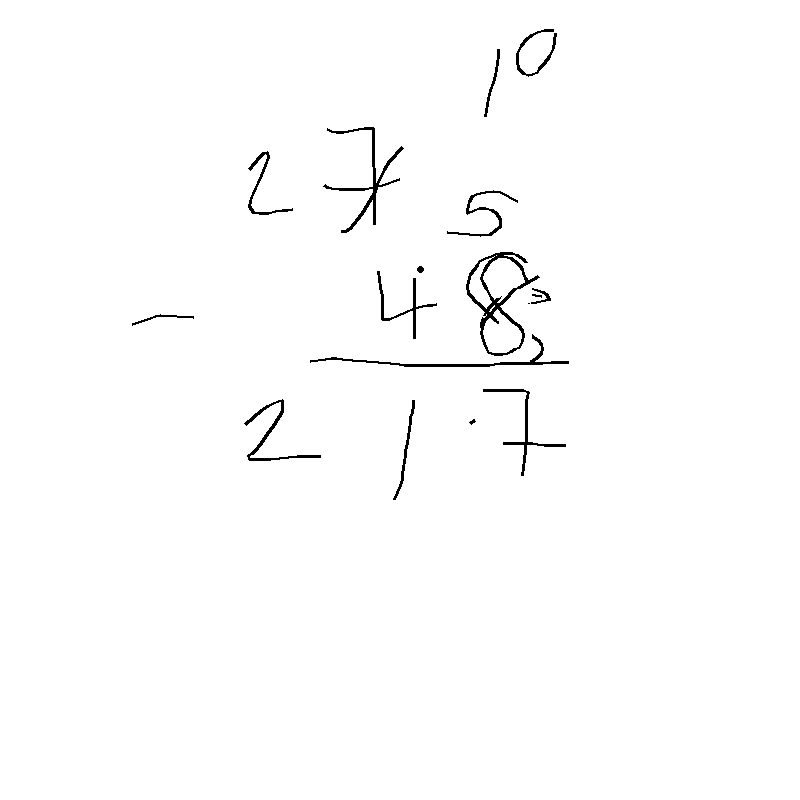 10
275
- 48
217